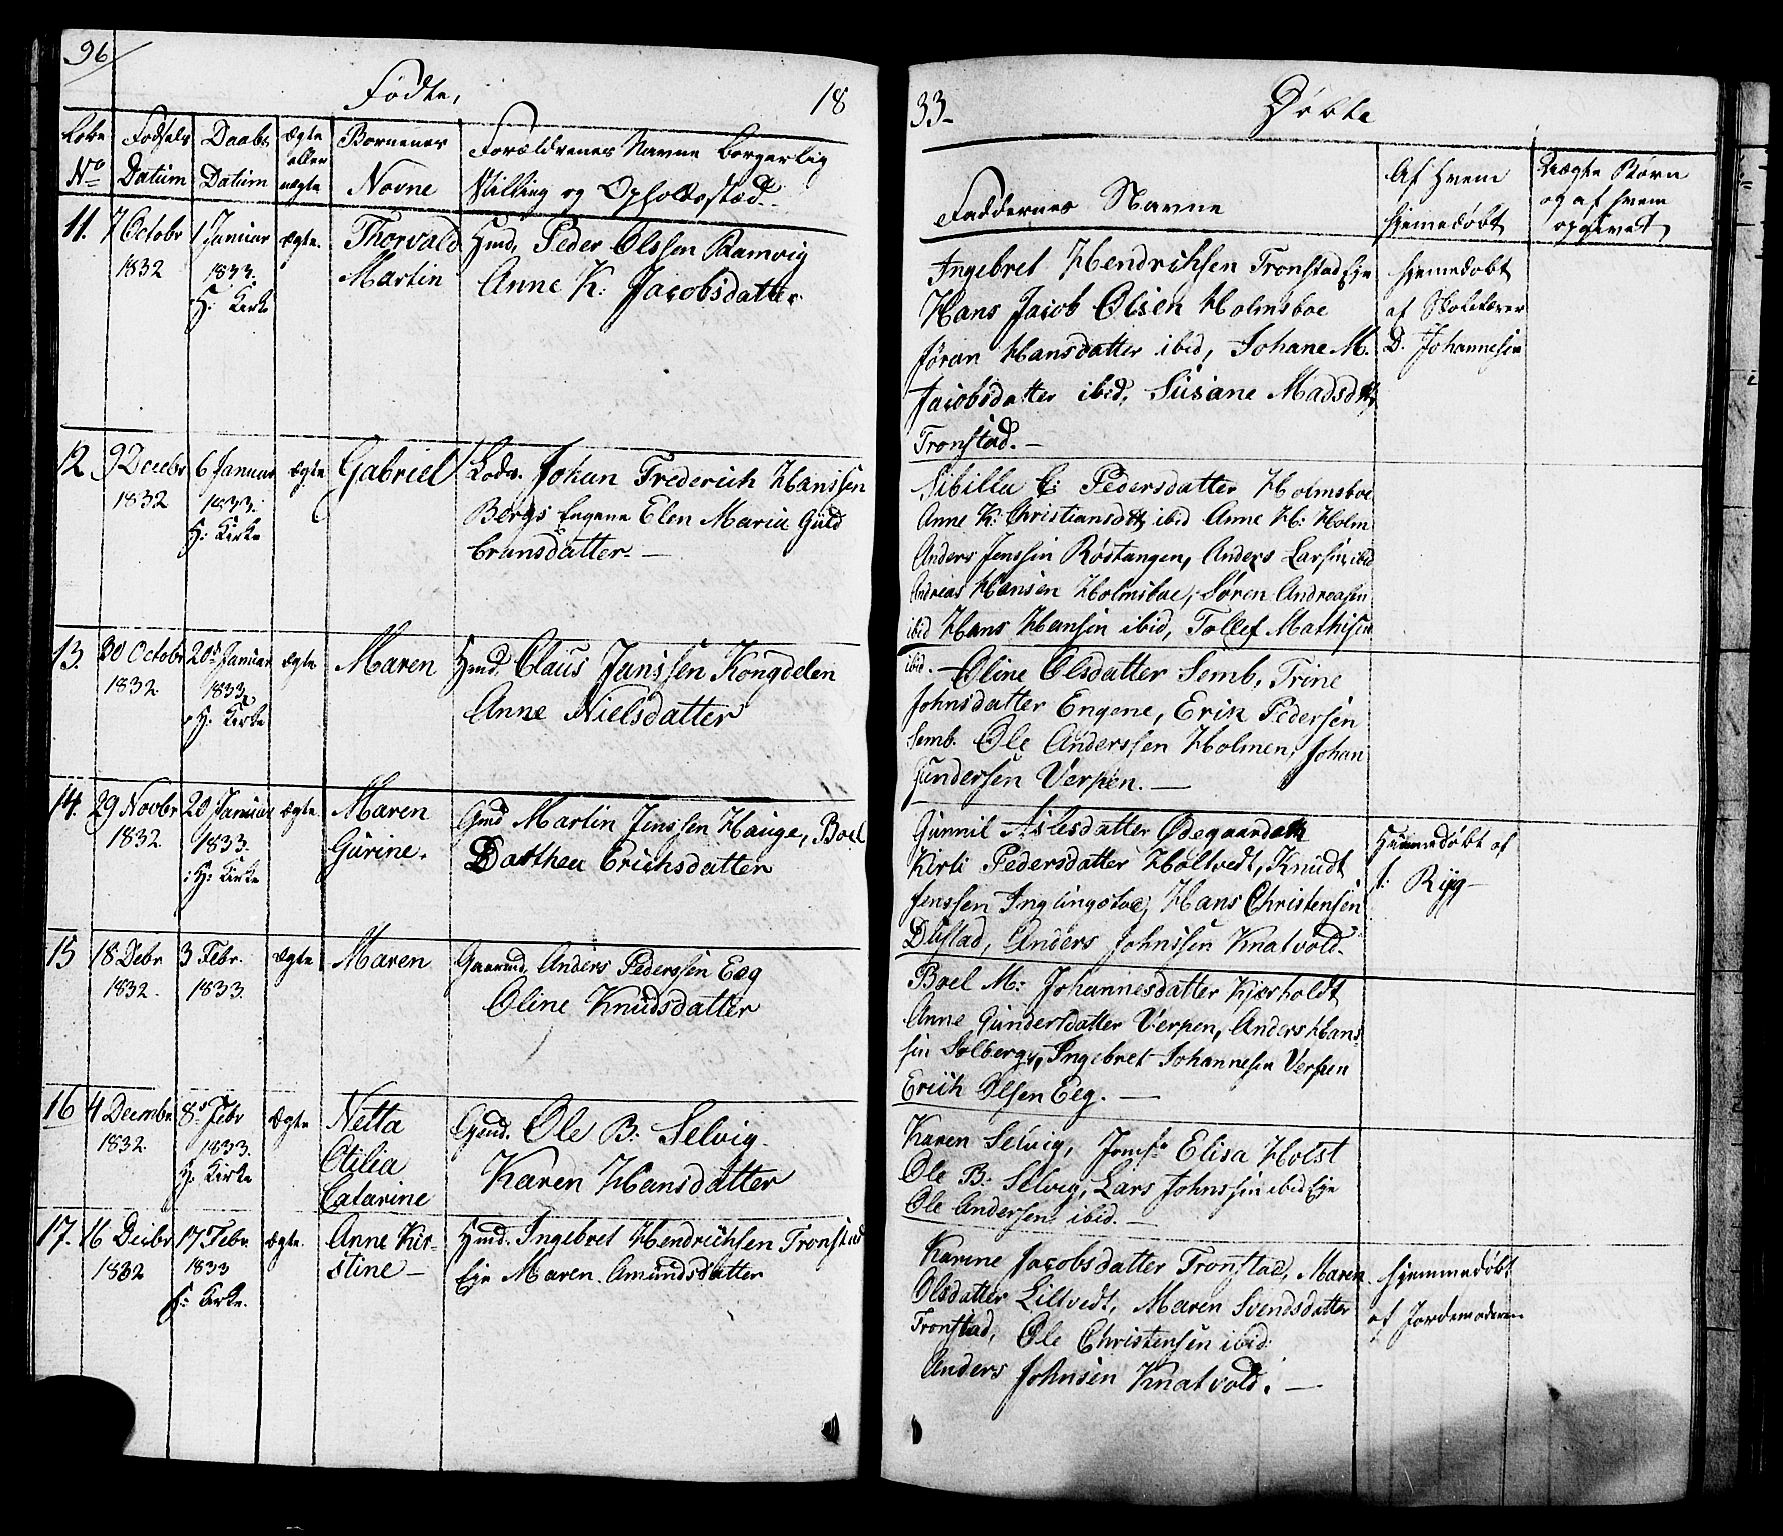 96
Fødte,
18
Løbe Fødsels Daabs Ægte Børnenes Forældrenes Navne borgerlig
eller
No Datum Datum uægte Navne Stilling og Opholdssted.
11. 7 Octobr 1 Januar ægte. Thorvald Hmd. Peder Olssen Ramvig
1832 1833. Martin Anne K: Jacobsdatter
H: Kirke
12 9 Decebr 6 Januar ægte Gabriel Lods. Johan Frederich Hanssen
1832 1833. Bergs Engene Elen Maria Guld
H: Kirke bransdatter. —
13. 30 Octobr 20d Januar ægte Maren Hmd. Claus Janssen Kongdelen
1832 1833. Anne Nielsdatter
H: Kirke
14. 29 Novbr 20 Januar ægte. Maren Gmd Martin Jenssen Hauge, Boel
1832 1833. Gurine. Dorthea Erichsdatter
H: Kirke
15 18 Debr 3 Febr. Ægte Maren Gaarmd. Anders Pederssen Eeg
1832. 1833. Oline Knudsdatter
16 4 Decmbr 8de Febr Ægte Netta Gmd. Ole B: Selvig.
1832 1833. Otilia Karen Hansdatter
H: Kirke Catarine
17. 16 Decbr 17 Febr ægte. Anne Kir- Hmd. Ingebret Hendrichsen Tronstad
1832 1833 stine — Eje Maren Amundsdatter
H: Kirke.
33-
Døbte
Faddernes Navne
Af Hvem
hjemedøbt
Uægte Børn
og af hvem
opgivet
Ingebret Hendrichsen Tronstad Eje Hjemedøbt
Hans Jacob Olsen Holmsboe af Skolelærer
Jøran Hansdatter ibid, Johane M. D. Johannesen
Jacobsdatter ibid, Susane Madsdtt,
Tronstad. —
Sibilla C: Pedersdatter Holmsboe
Anne K: Christiansdtt ibid Anne H: Holm
Anders Jenssen Rødtangen, Anders Larsen ibid
Andreas Hansen Holmsboe, Søren Andreasen
ibid Hans Hansen ibid, Tollef Mathisen
ibid. — Oline Olsdatter Semb, Trine
Johnsdatter Engene, Erik Pedersen
Semb. Ole Anderssen Holmen, Johan
Gundersen Verpen. —
Gunnil Aslesdatter Ødegaarden Hjemmedøbt af
Kirti Pedersdatter Holtvedt, Knudt J: Ryg —
Jenssen Inglingstad, Hans Christensen
Distad, Anders Johnssen Knatvold.
Boel M: Johannesdatter Kjærholdt
Anne Gundersdatter Verpen, Anders Hans-
sen Solberg, Ingebret Johannesen Verpen
Erich Olsen Eeg. —
Karen Selvig, Jomf. Elisa Holst
Ole B: Selvig, Lars Johnssen ibid Eje
Ole Andersen ibid. —
Karine Jacobsdatter Tronstad, Maren Hjemmedøbt
Olsdatter Liltvedt, Maren Svendsdatter af Jordemoderen
Tronstad, Ole Christensen ibid:
Anders Johnsen Knatvold. —